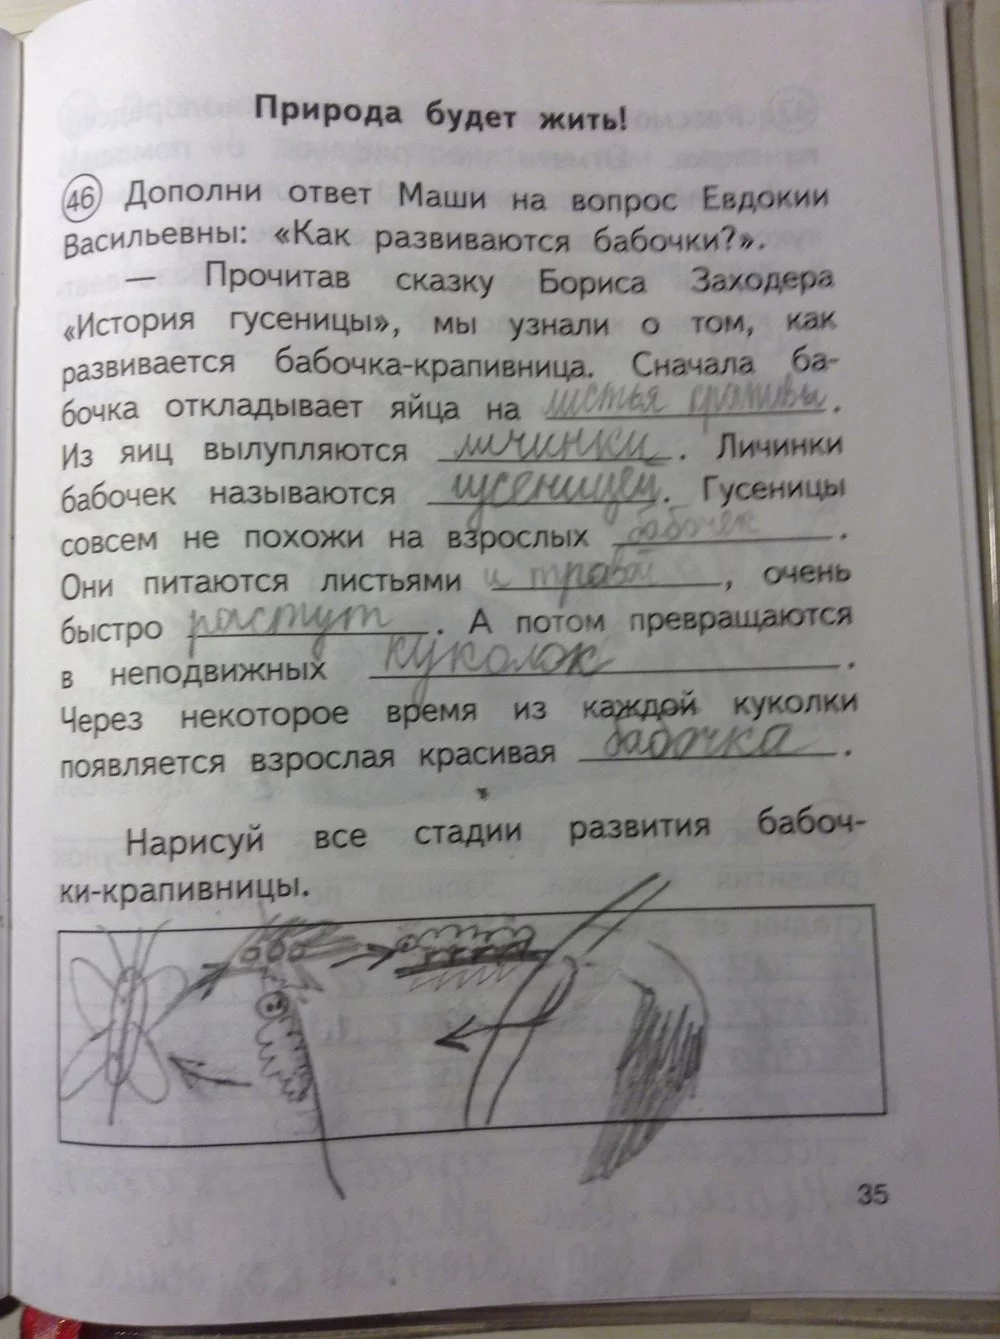 Природа будет жить!
46 Дополни ответ Маши на вопрос Евдокии
Васильевны: «Как развиваются бабочки?».
— Прочитав сказку Бориса Заходера
«История гусеницы», мы узнали о том, как
развивается бабочка-крапивница. Сначала ба-
бочка откладывает яйца на листья крапивы.
Из яиц вылупляются личинки. Личинки
бабочек называются гусеницей. Гусеницы
совсем не похожи на взрослых бабочек.
Они питаются листьями и травой, очень
быстро растут. А потом превращаются
в неподвижных куколок.
Через некоторое время из каждой куколки
появляется взрослая красивая бабочка.
Нарисуй все стадии развития бабоч-
ки-крапивницы.
35